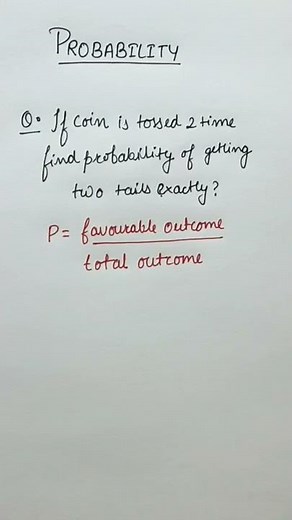 PROBABILITY
Q. If coin is tossed 2 time
find probability of getting
two tails exactly?
P = favourable outcome
total outcome